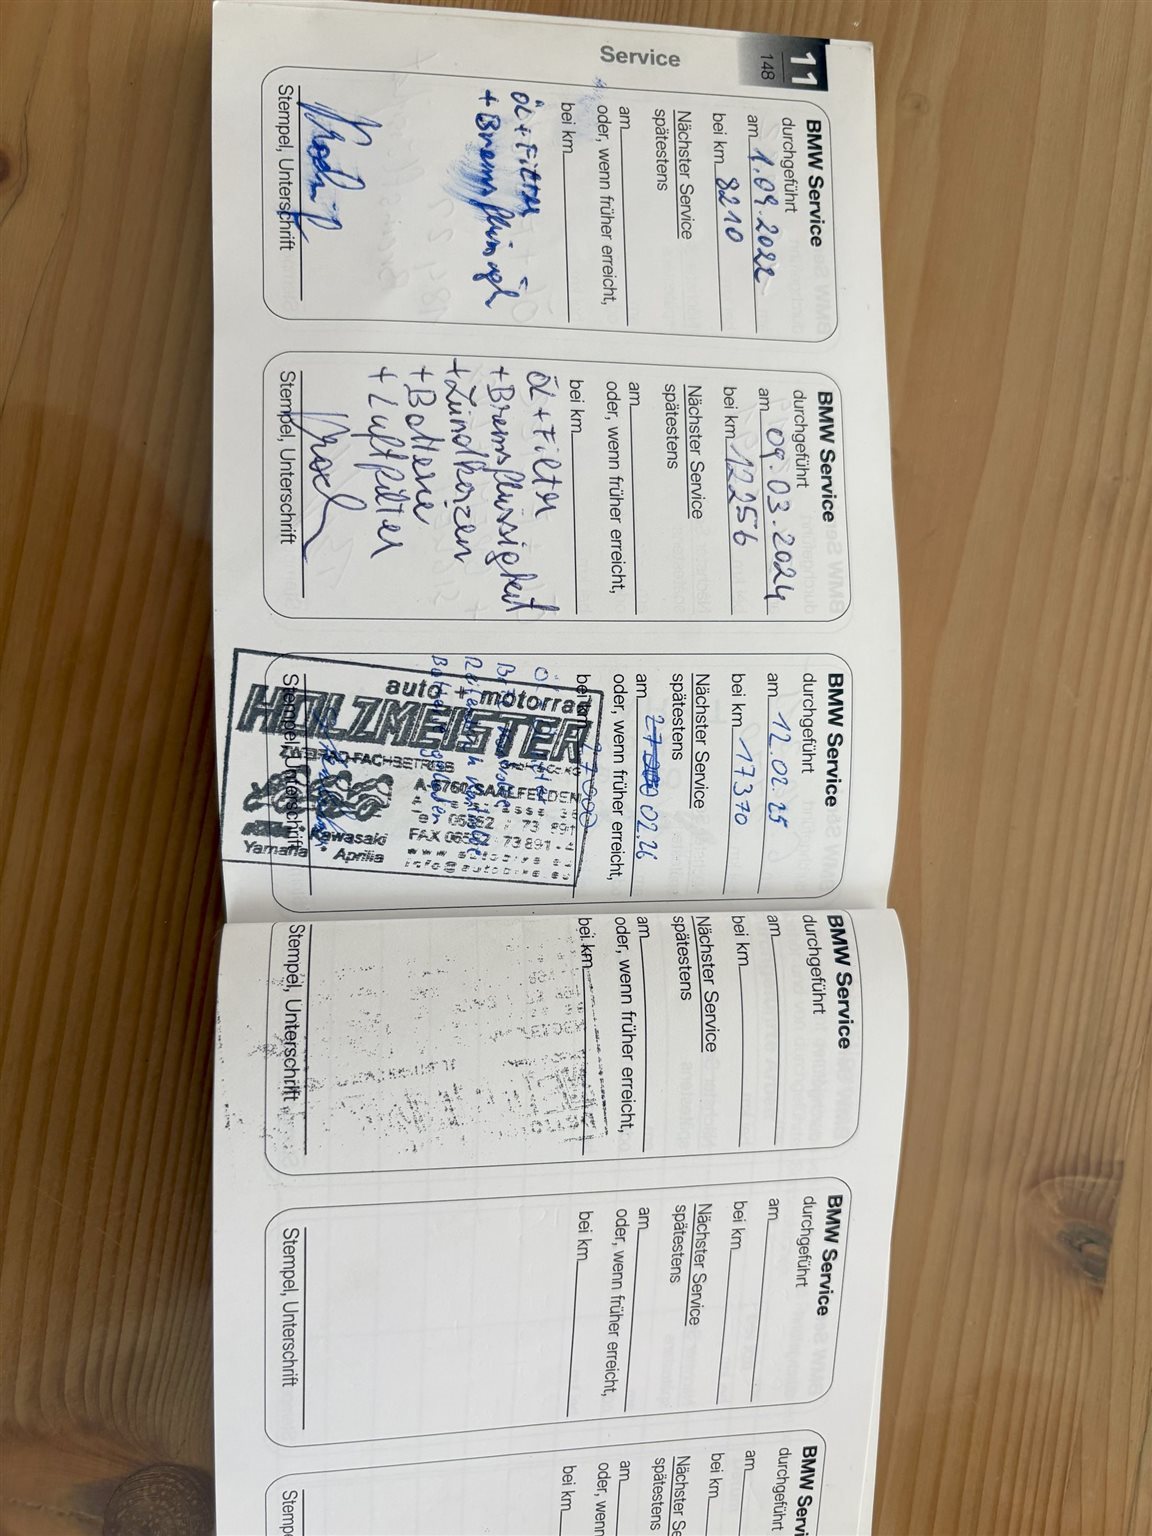 11
148
Service
BMW Service
durchgeführt
am 1.09.2022
bei km 8210
Nächster Service
spätestens
am
oder, wenn früher erreicht,
bei km
ÖL + Filter
+ Bremsflüssigk
Stempel, Unterschrift
BMW Service
durchgeführt
am 09.03.2024
bei km 12256
Nächster Service
spätestens
am
oder, wenn früher erreicht,
bei km
ÖL + Filter
+ Bremsflüssigkeit
+ Zündkerzen
+ Batterie
+ Luftfilter
Stempel, Unterschrift
BMW Service
durchgeführt
am 12.02.25
bei km 17370
Nächster Service
spätestens
am 02.26
oder, wenn früher erreicht,
bei km 27000
auto + motorrad
HOLZMEISTER
Kawasaki
Yamaha Aprilia
Stempel, Unterschrift
BMW Service
durchgeführt
am
bei km
Nächster Service
spätestens
am
oder, wenn früher erreicht,
bei km
Stempel, Unterschrift
BMW Service
durchgeführt
am
bei km
Nächster Service
spätestens
am
oder, wenn früher erreicht,
bei km
Stempel, Unterschrift
BMW Servi
durchgeführt
am
bei km
Nächster Se
spätestens
am
oder, wenn
bei km
Stempe